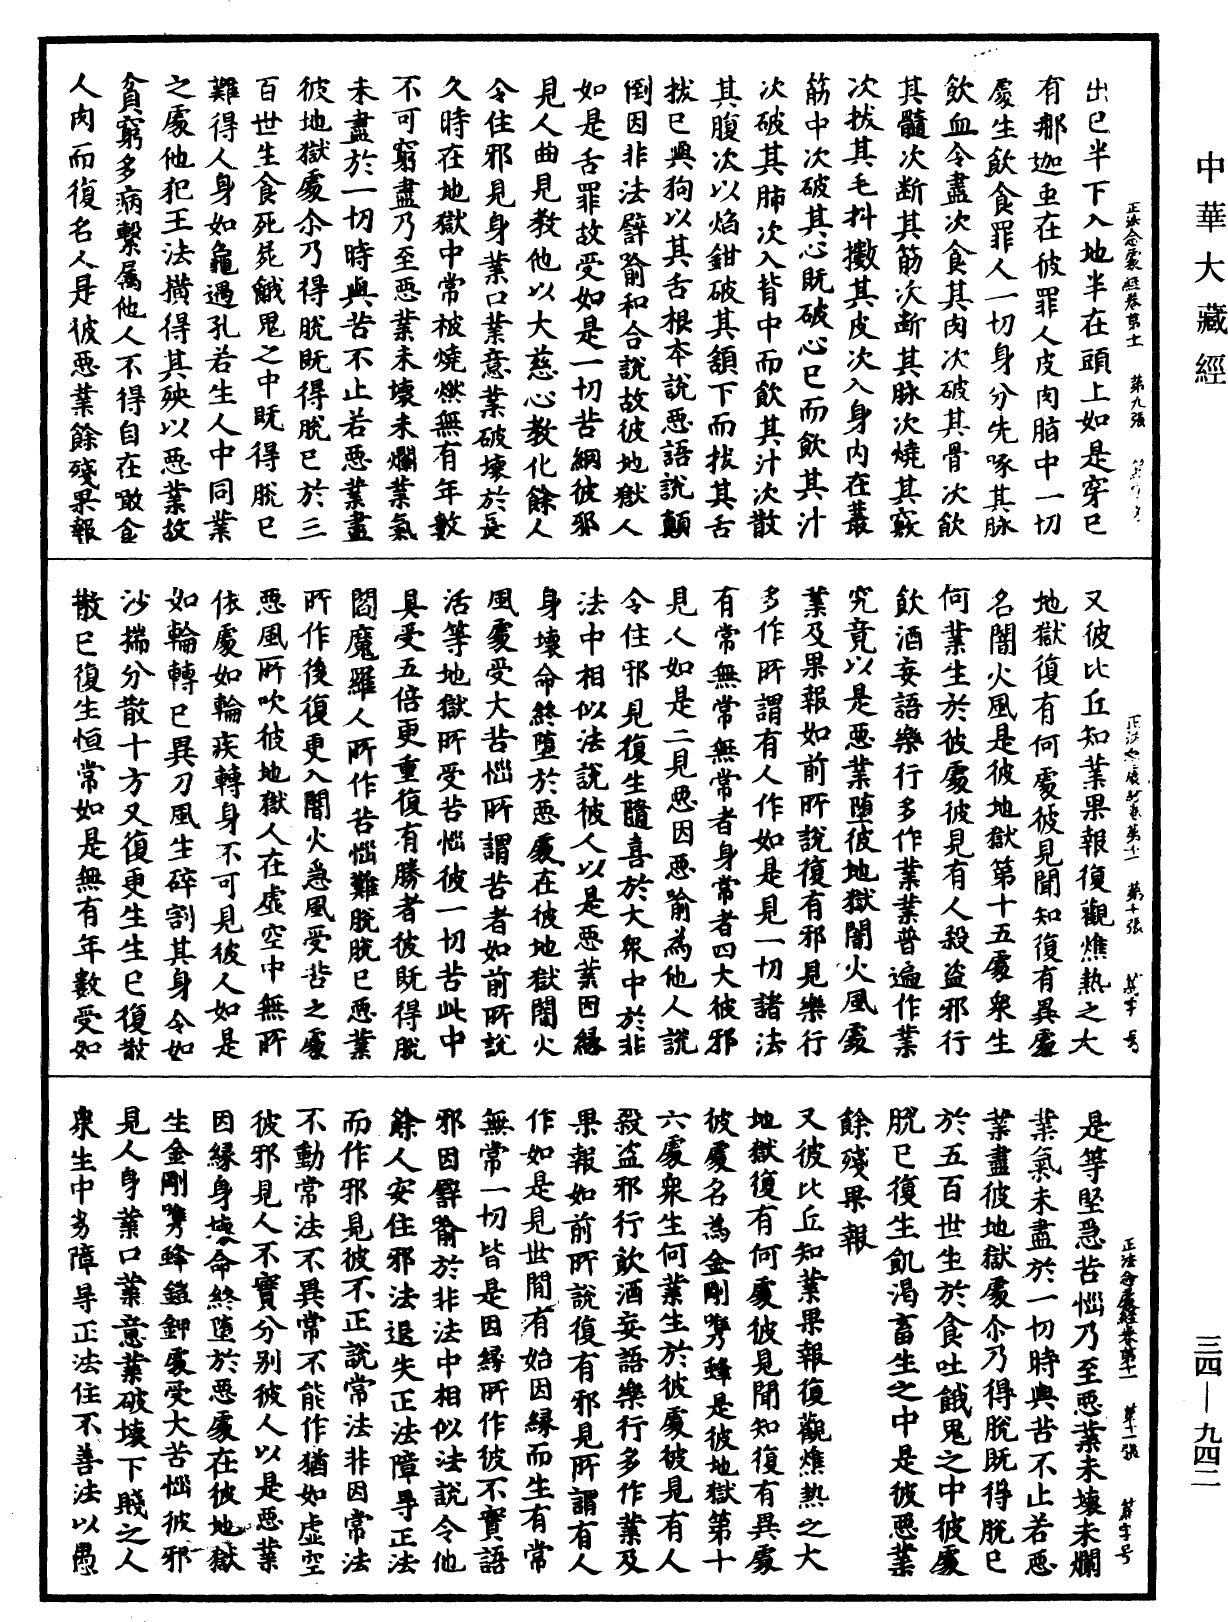 中華大藏經
正法念處經卷第十一　第九張
出已半下入地半在頭上如是穿已
有那迦虫在彼罪人皮肉脂中一切
處生飲食罪人一切身分先啄其脉
飲血令盡次食其肉次破其骨次飲
其髓次断其筋次断其脉次燒其竅
次拔其毛抖擻其皮次入身内在叢
筋中次破其心既破心已而飲其汁
次破其肺次入背中而飲其汁次散
其腹次以焰鉗破其頷下而拔其舌
拔已與狗以其舌根本說惡語說顛
倒因非法譬喻和合說故彼地獄人
如是舌罪故受如是一切苦網彼邪
見人曲見教他以大慈心教化餘人
令住邪見身業口業意業破壞於長
久時在地獄中常被燒燃無有年數
不可窮盡乃至惡業未壞未爛業氣
未盡於一切時與苦不止若惡業盡
彼地獄處尒乃得脫既得脫已於三
百世生食死屍餓鬼之中既得脫已
難得人身如龜遇孔若生人中同業
之處他犯王法橫得其殃以惡業故
貧窮多病繫属他人不得自在噉食
人肉而復名人是彼惡業餘殘果報
正法念處經卷第十一　第十張　　字号
又彼比丘知業果報復觀燋熱之大
地獄復有何處彼見聞知復有異處
名闇火風是彼地獄第十五處衆生
何業生於彼處彼見有人殺盗邪行
飲酒妄語樂行多作業業普遍作業
究竟以是惡業墮彼地獄闇火風處
業及果報如前所說復有邪見樂行
多作所謂有人作如是見一切諸法
有常無常無常者身常者四大彼邪
見人如是二見惡因惡喻為他人說
令住邪見復生隨喜於大衆中於非
法中相似法說彼人以是惡業因緣
身壞命終墮於惡處在彼地獄闇火
風處受大苦惱所謂苦者如前所說
活等地獄所受苦惱彼一切苦此中
具受五倍更重復有勝者彼既得脫
閻魔羅人所作苦惱難脫脫已惡業
所作後復更入闇火急風受苦之處
惡風所吹彼地獄人在虛空中無所
依處如輪疾轉身不可見彼人如是
如輪轉已異刀風生碎割其身令如
沙揣分散十方又復更生生已復散
散已復生恒常如是無有年數受如
正法念處經卷第十一　第十一張　　字号
是等堅急苦惱乃至惡業未壞未爛
業氣未盡於一切時與苦不止若惡
業盡彼地獄處尒乃得脫既得脫已
於五百世生於食吐餓鬼之中彼處
脫已復生飢渴畜生之中是彼惡業
餘殘果報
又彼比丘知業果報復觀燋熱之大
地獄復有何處彼見聞知復有異處
彼處名為金剛嘴蜂是彼地獄第十
六處衆生何業生於彼處彼見有人
殺盗邪行飲酒妄語樂行多作業及
果報如前所說復有邪見所謂有人
作如是見世間有始因緣而生有常
無常一切皆是因緣所作彼不實語
邪因譬喻於非法中相似法說令他
餘人安住邪法退失正法障㝵正法
而作邪見彼不正說常法非因常法
不動常法不異常不能作猶如虛空
彼邪見人不實分別彼人以是惡業
因緣身壞命終墮於惡處在彼地獄
生金剛嘴蜂鎧鉀處受大苦惱彼邪
見人身業口業意業破壞下賤之人
衆生中劣障㝵正法住不善法以愚
三四—九四二